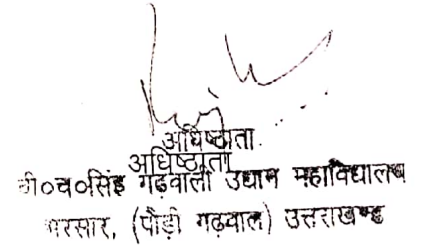 अधिष्ठाता
अधिष्ठाता
वी०च०सिंह गढ़वाली उद्यान महाविधालय
भरसार, (पौड़ी गढ़वाल) उत्तराखण्ड